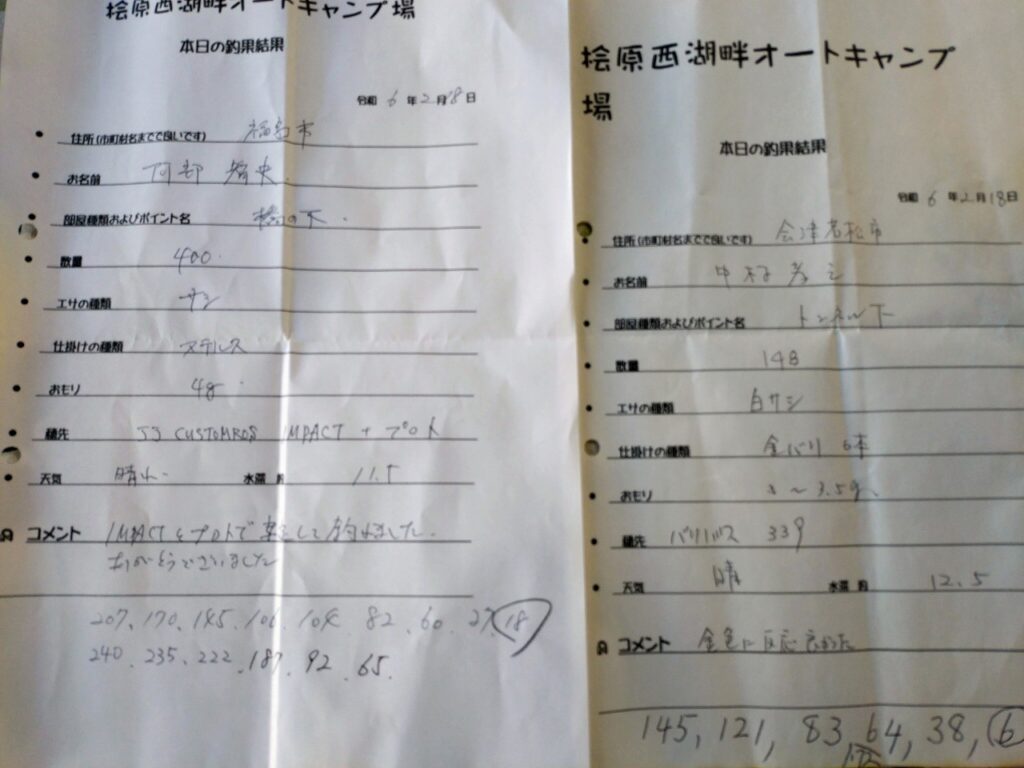 桧原西湖畔オートキャンプ場
本日の釣果結果
令和 6 年 2 月 18 日
住所(市町村名まででで良いです) 福島市
お名前 阿部
部屋種類およびポイント名 橋の下.
数量 400.
エサの種類 サシ
仕掛けの種類 ステルス
おもり 4g.
穂先 53 CUSTOMROS IMPACT + プロト
天気 晴れ 水深 約 11.5
コメント IMPACTとプロトで楽しく釣れました.
ありがとうございました
207、170、145、106、104、82、60、27、18
240、235、222、187、92、65.
桧原西湖畔オートキャンプ
場
本日の釣果結果
令和 6 年 2 月 18 日
住所(市町村名まででで良いです) 会津若松市
お名前 中村
部屋種類およびポイント名 トンネル下
数量 148
エサの種類 白サシ
仕掛けの種類 金バリ 6本
おもり 3〜3.5g.
穂先 バリバス 339
天気 晴 水深 約 12.5
コメント 金色に反応良かった
145, 121, 83, 64, 38, 6